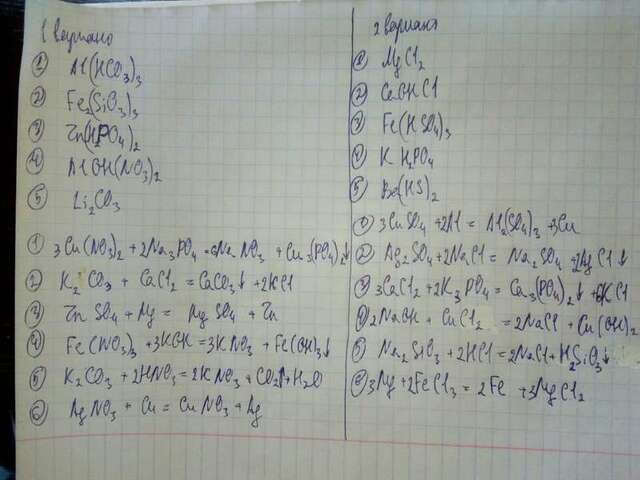 1 вариант
① Al(HCO₃)₃
② Fe₂(SiO₃)₃
③ Zn(H₂PO₄)₂
④ AlOH(NO₃)₂
⑤ Li₂CO₃
① 3Cu(NO₃)₂ + 2Na₃PO₄ = 6NaNO₃ + Cu₃(PO₄)₂↓
② K₂CO₃ + CaCl₂ = CaCO₃↓ + 2KCl
③ ZnSO₄ + Mg = MgSO₄ + Zn
④ Fe(NO₃)₃ + 3KOH = 3KNO₃ + Fe(OH)₃↓
⑤ K₂CO₃ + 2HNO₃ = 2KNO₃ + CO₂↑ + H₂O
⑥ AgNO₃ + Cu = CuNO₃ + Ag
2 вариант
① MgCl₂
② CaOHCl
③ Fe(HSO₄)₃
④ KH₂PO₄
⑤ Ba(HS)₂
① 3CuSO₄ + 2Al = Al₂(SO₄)₃ + 3Cu
② Ag₂SO₄ + 2NaCl = Na₂SO₄ + 2AgCl↓
③ 3CaCl₂ + 2K₃PO₄ = Ca₃(PO₄)₂↓ + 6KCl
④ 2NaOH + CuCl₂ = 2NaCl + Cu(OH)₂
⑤ Na₂SiO₃ + 2HCl = 2NaCl + H₂SiO₃↓
⑥ 3Mg + 2FeCl₃ = 2Fe + 3MgCl₂